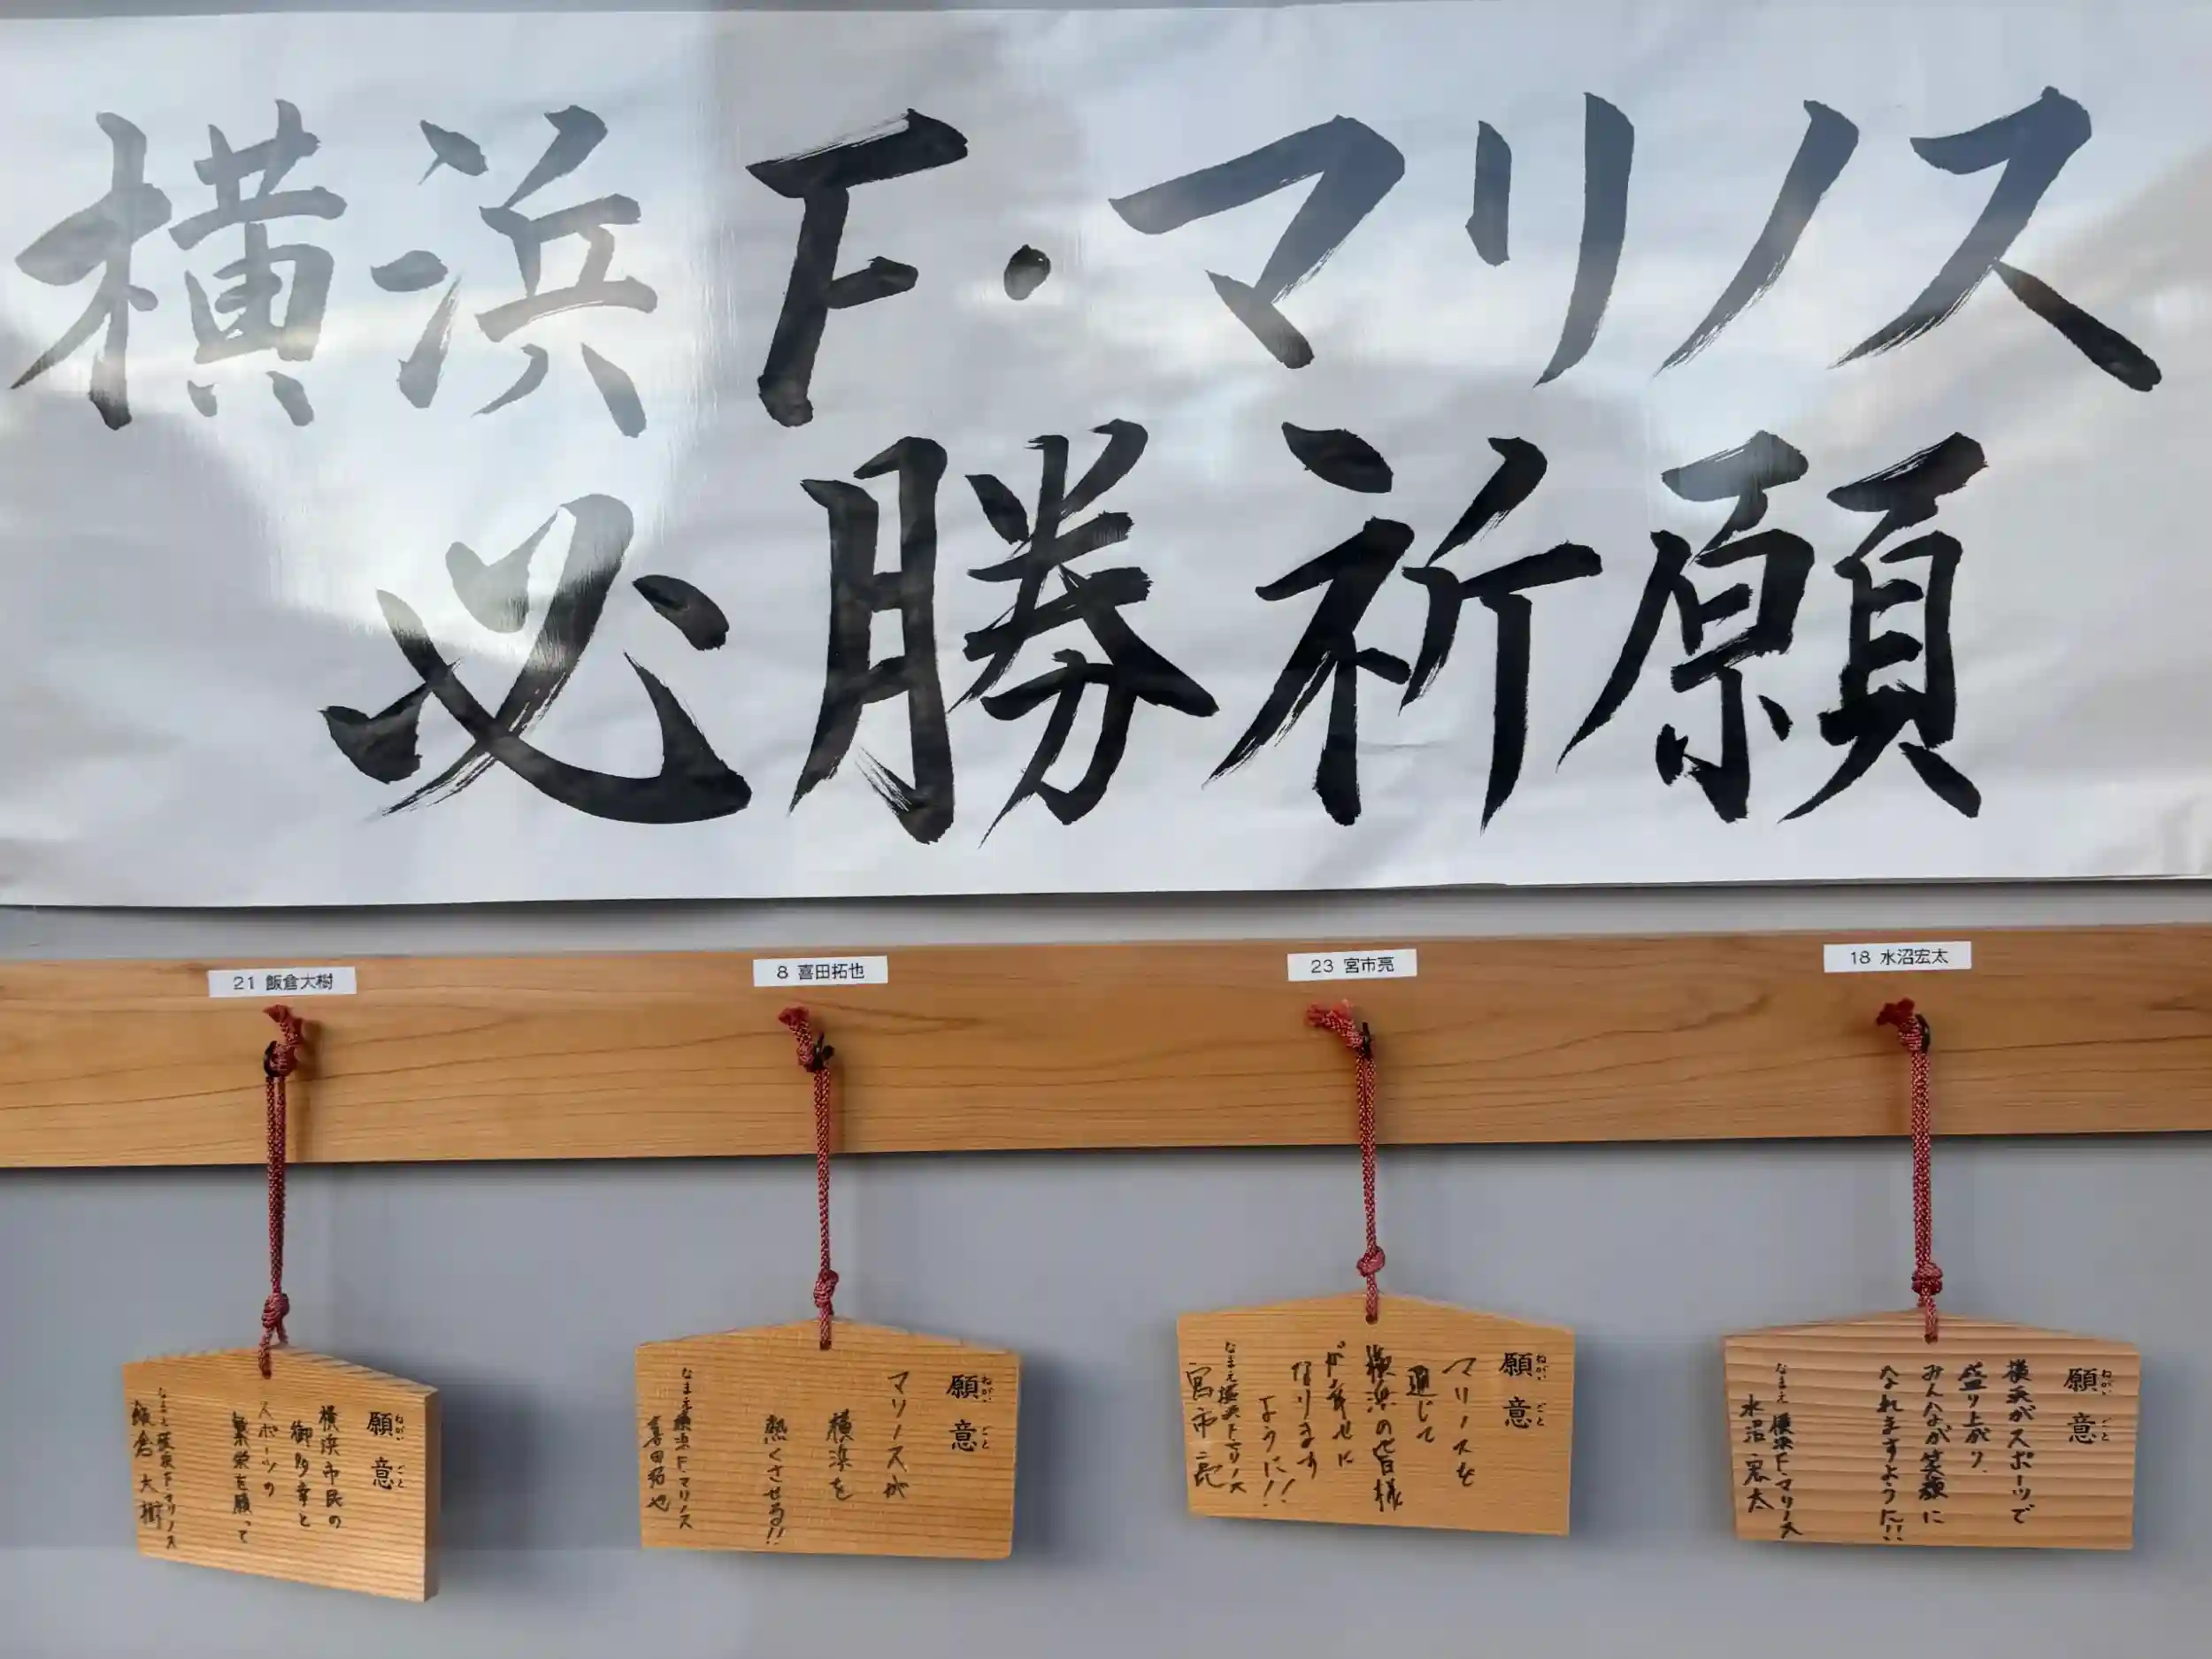 横浜F・マリノス
必勝祈願
21 飯倉大樹
8 喜田拓也
23 宮市亮
18 水沼宏太
願意
ねがいごと
横浜市民の
御多幸と
スポーツの
繁栄を願って
なまえ 横浜F・マリノス
飯倉 大樹
願意
ねがいごと
マリノスが
横浜を
熱くさせる!!
なまえ 横浜F・マリノス
喜田拓也
願意
ねがいごと
マリノスを
通じて
横浜の皆様
が幸せに
なります
ように!!
なまえ 横浜F・マリノス
宮市亮
願意
ねがいごと
横浜がスポーツで
盛り上がり、
みんなが笑顔に
なれますように!!
なまえ 横浜F・マリノス
水沼宏太